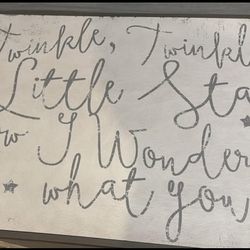 Twinkle, Twinkl
Little Sta
ow I Wonder
what you